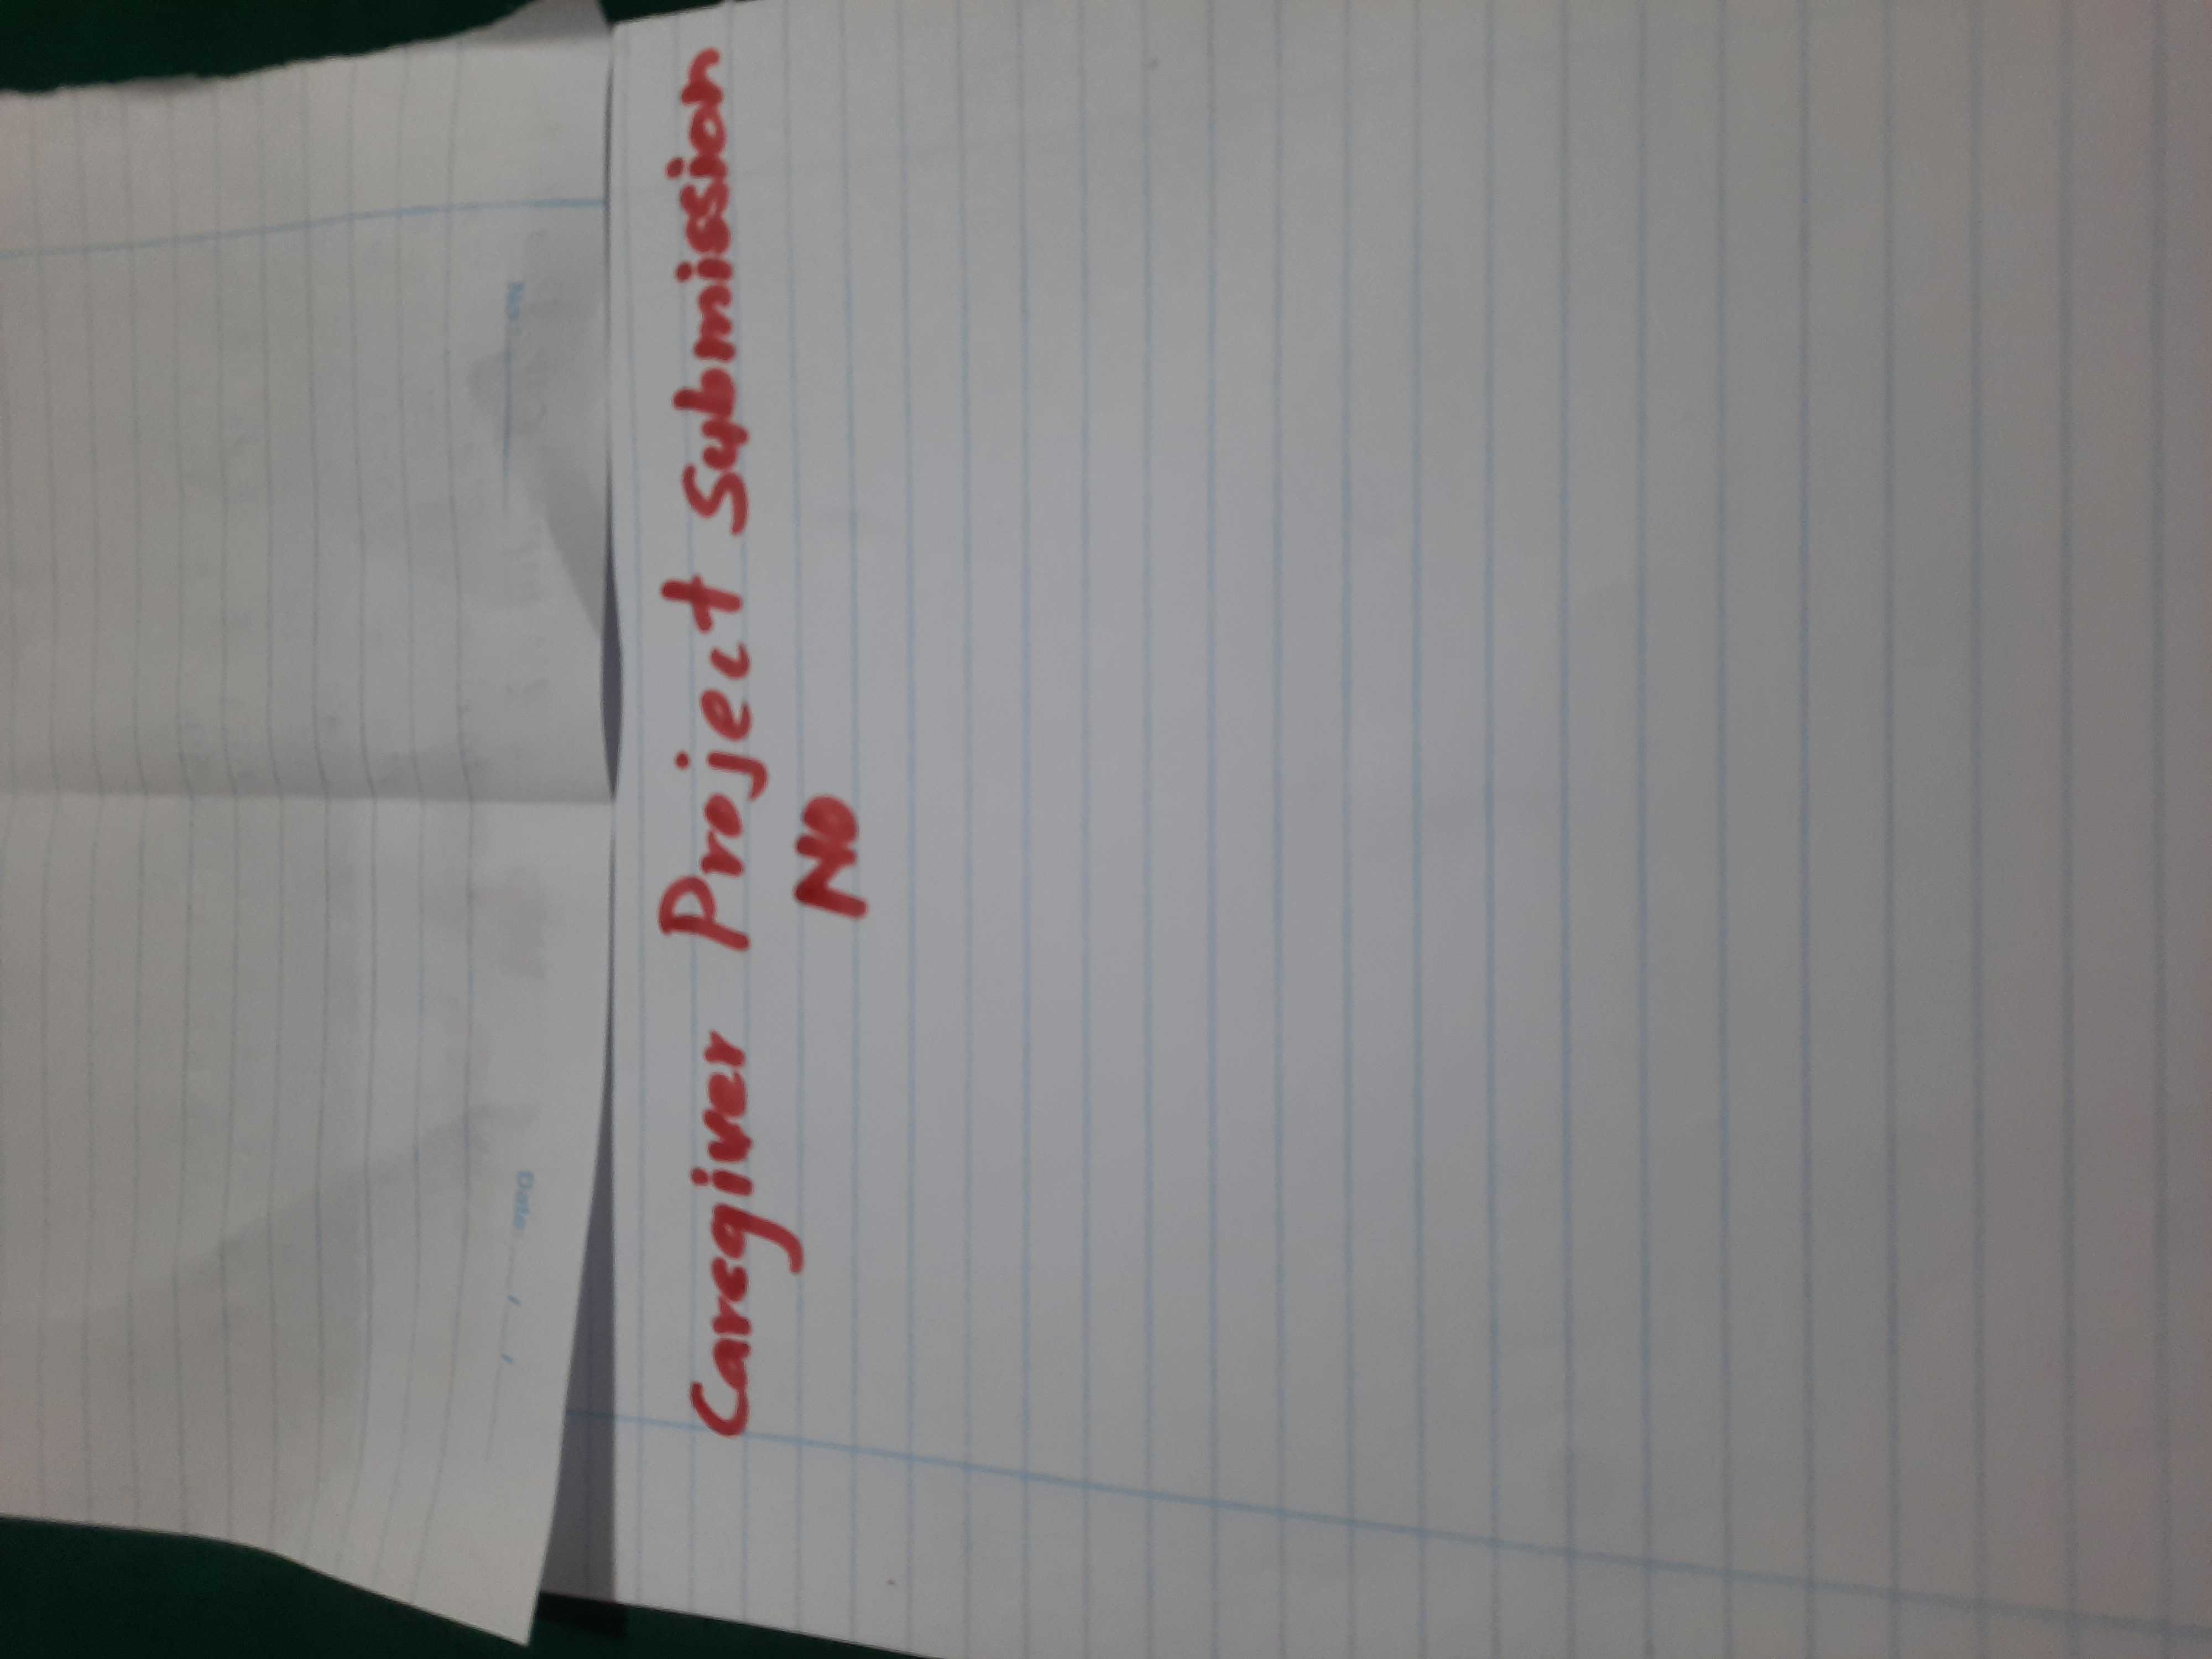 No
Date / /
Caregiver Project Submission
NO